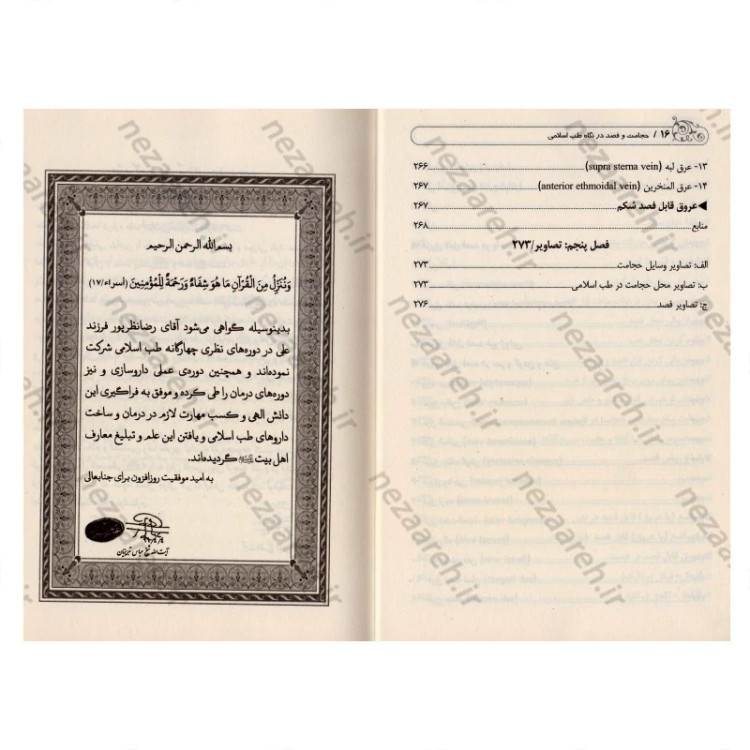 ۱۶ / حجامت و فصد در نگاه طب اسلامی
۱۳- عرق لبه (supra sterna vein) ........ ۲۶۶
۱۴- عرق المنخرین (anterior ethmoidal vein) ........ ۲۶۷
◀عروق قابل فصد شکم ........ ۲۶۷
منابع ........ ۲۶۸
فصل پنجم: تصاویر/۲۷۳
الف: تصاویر وسایل حجامت ........ ۲۷۳
ب: تصاویر محل حجامت در طب اسلامی ........ ۲۷۳
ج: تصاویر فصد ........ ۲۷۶
بسم الله الرحمن الرحیم
وَنُنَزِّلُ مِنَ الْقُرْآنِ مَا هُوَ شِفَاءٌ وَرَحْمَةٌ لِلْمُؤْمِنِینَ (اسراء/۱۷)
بدینوسیله گواهی می‌شود آقای رضانظرپور فرزند
علی در دوره‌های نظری چهارگانه طب اسلامی شرکت
نموده‌اند و همچنین دوره‌ی عملی داروسازی و نیز
دوره‌های درمان را طی کرده و موفق به فراگیری این
دانش الهی و کسب مهارت لازم در درمان و ساخت
داروهای طب اسلامی و یافتن این علم و تبلیغ معارف
اهل بیت گردیده‌اند.
به امید موفقیت روزافزون برای جنابعالی
آیت الله شیخ عباس تبریزیان
nezaareh.ir